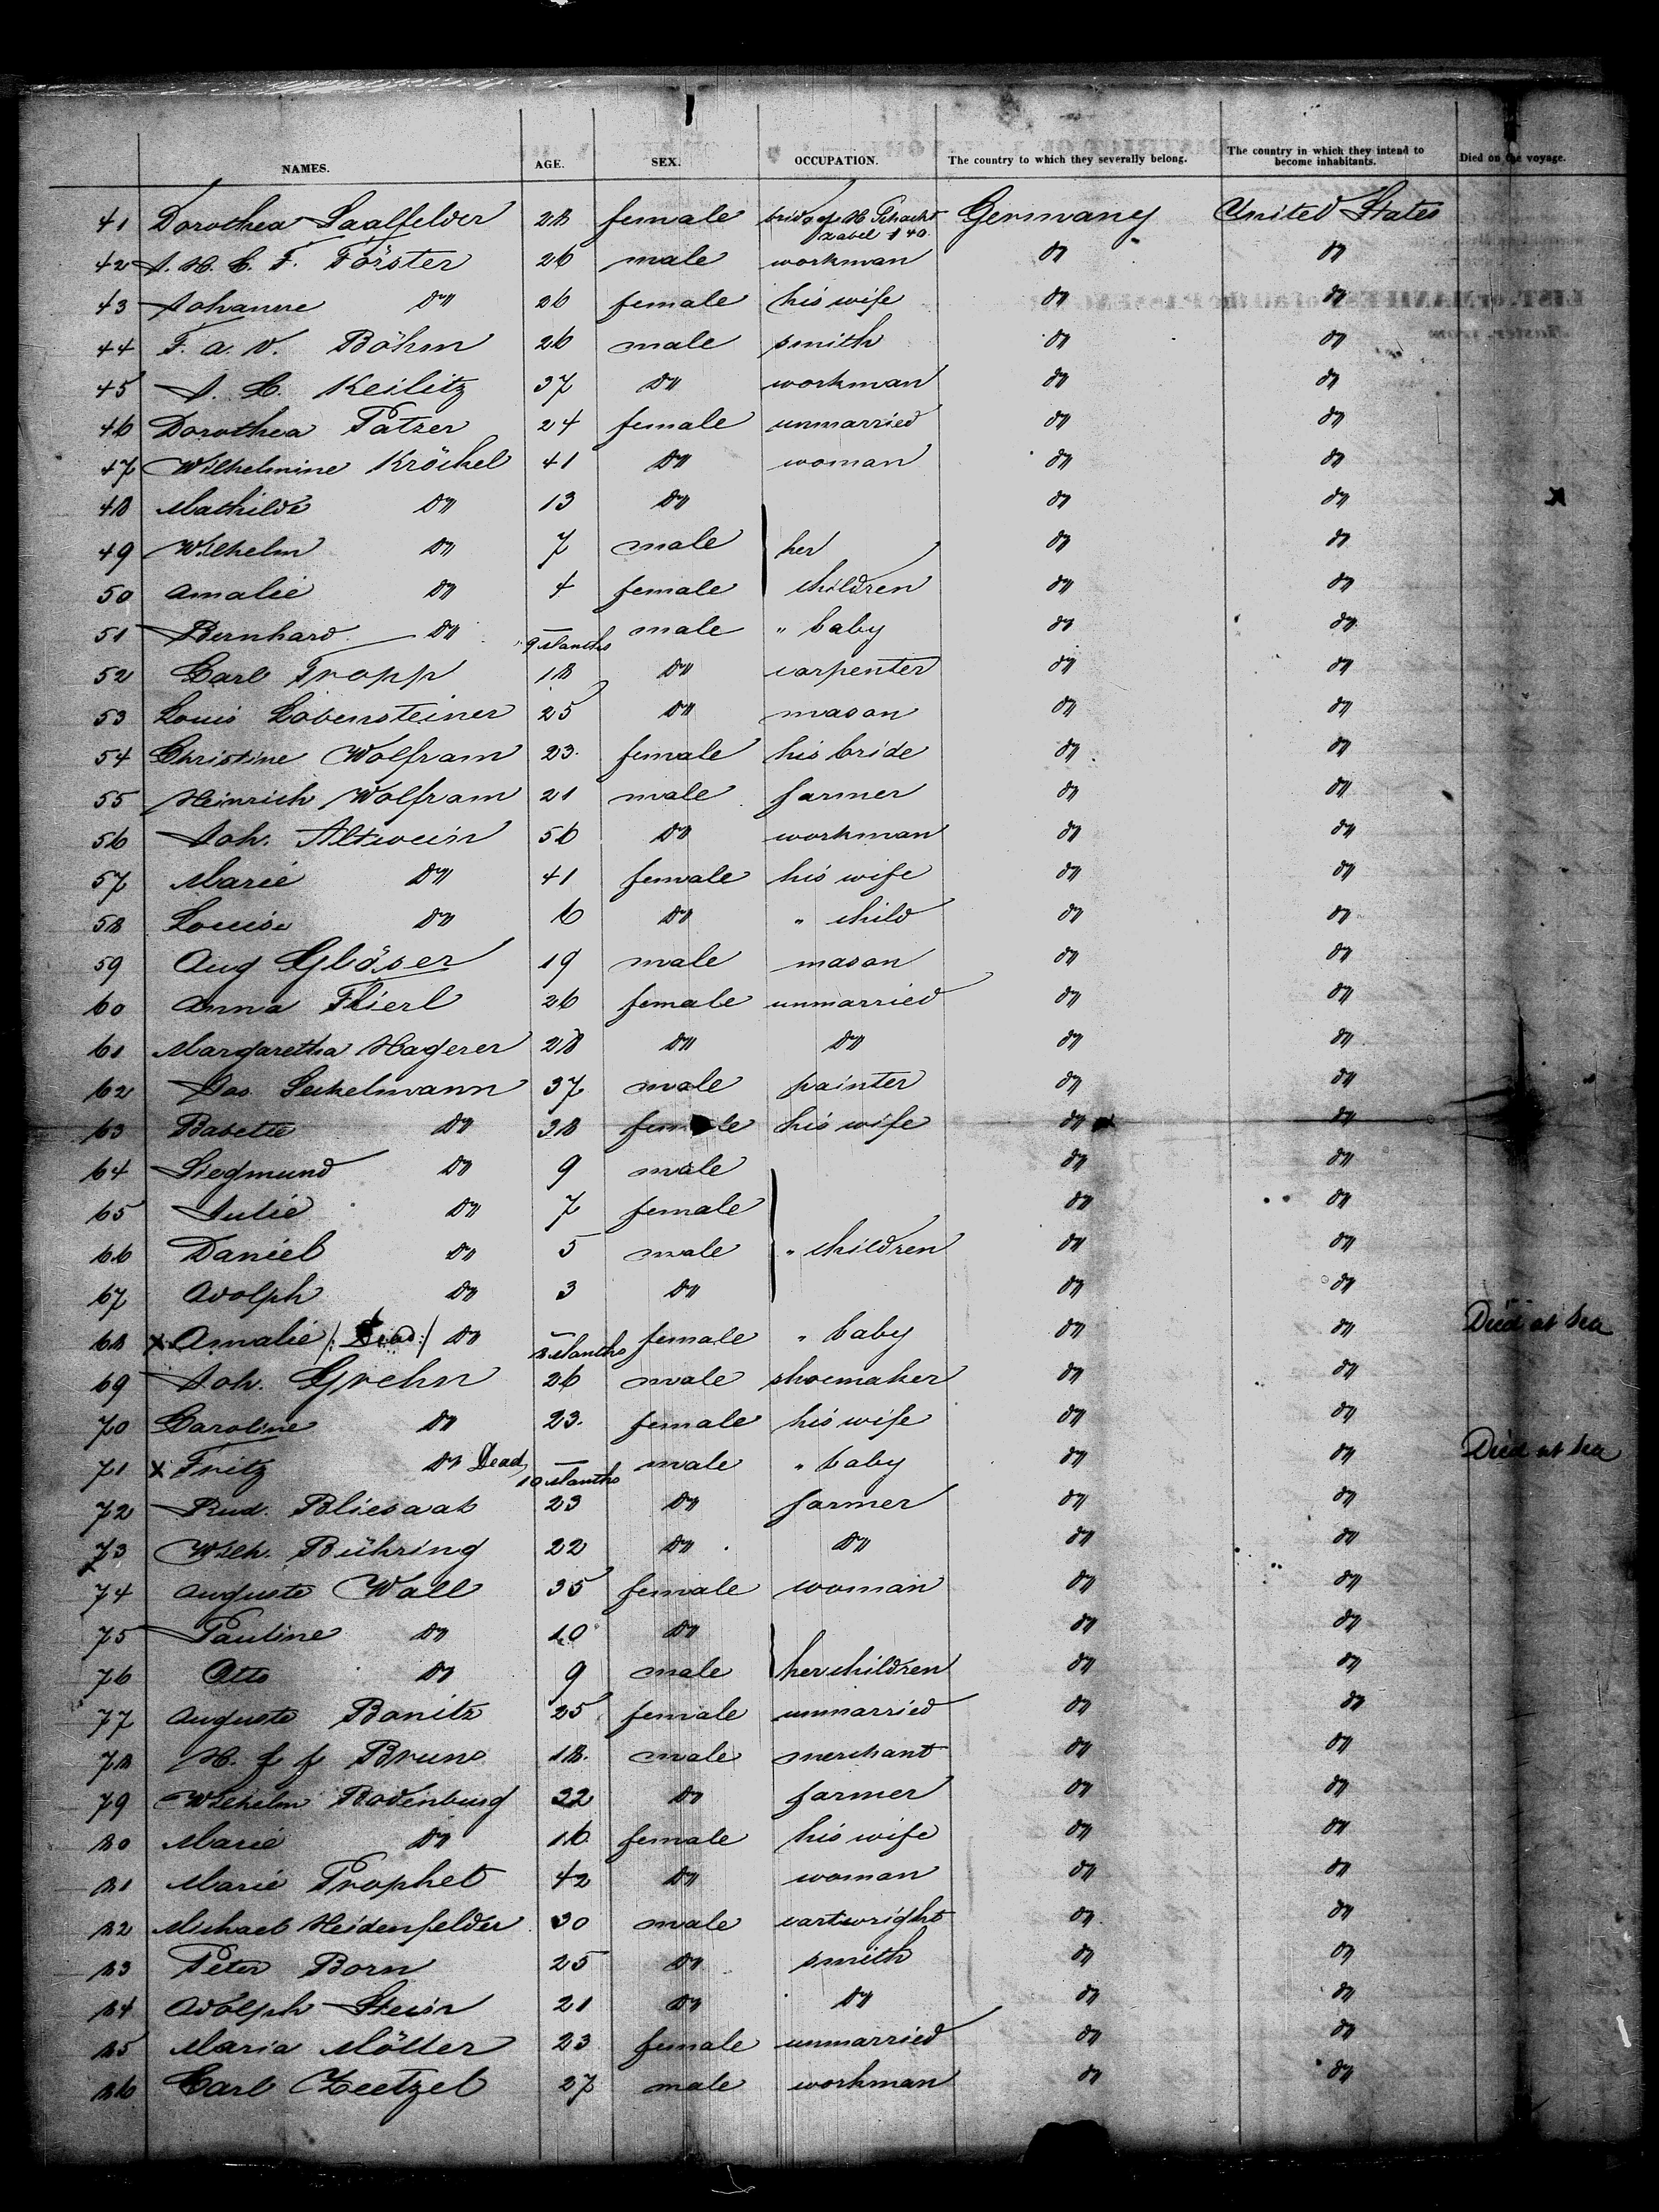 NAMES. AGE. SEX. OCCUPATION. The country to which they severally belong. The country in which they intend to become inhabitants. Died on the voyage.
41 Dorothea Saalfelder 28 female bride of H. Schacht Germany United States
42 J. H. C. F. Förster 26 male workman do do
43 Johanne do 26 female his wife do do
44 F. A. V. Böhm 26 male smith do do
45 J. C. Keilitz 37 do workman do do
46 Dorothea Patzer 24 female unmarried do do
47 Wilhelmine Kröckel 41 do woman do do
48 Mathilde do 13 do do do x
49 Wilhelm do 7 male her do do
50 Amalie do 4 female children do do
51 Bernhard do 9 Months male " baby do do
52 Carl Tropp 18 do carpenter do do
53 Louis Lobensteiner 25 do mason do do
54 Christine Wolfram 23. female his bride do do
55 Heinrich Wolfram 21 male farmer do do
56 Joh. Altwein 56 do workman do do
57 Marie do 41 female his wife do do
58 Louise do 6 do " child do do
59 Aug Gläser 19 male mason do do
60 Anna Flierl 26 female unmarried do do
61 Margaretha Hagerer 28 do do do do
62 Jos. Seckelmann 37 male painter do do
63 Babette do 38 female his wife do do
64 Siegmund do 9 male do do
65 Julie do 7 female do do
66 Daniel do 5 male " children do do
67 Adolph do 3 do do do
68 x Amalie /: Dead :/ do 8 Months female " baby do do Died at Sea
69 Joh. Grehn 26 male shoemaker do do
70 Caroline do 23. female his wife do do
71 x Fritz do Dead 10 Months male " baby do do Died at Sea
72 Rud. Bliesaat 23 do farmer do do
73 Wilh. Bühring 22 do do do do
74 Auguste Wall 35 female woman do do
75 Pauline do 10 do do do
76 Otto do 9 male her children do do
77 Auguste Banitz 25 female unmarried do do
78 H. J. J. Bruns 18. male merchant do do
79 Wilhelm Bodenburg 32 do farmer do do
80 Marie do 16. female his wife do do
81 Marie Prophet 42 do woman do do
82 Michael Heidenfelder 30 male cartwright do do
83 Peter Born 25 do smith do do
84 Adolph Stein 21 do do do do
85 Maria Möller 23 female unmarried do do
86 Carl Zeetzel 27 male workman do do